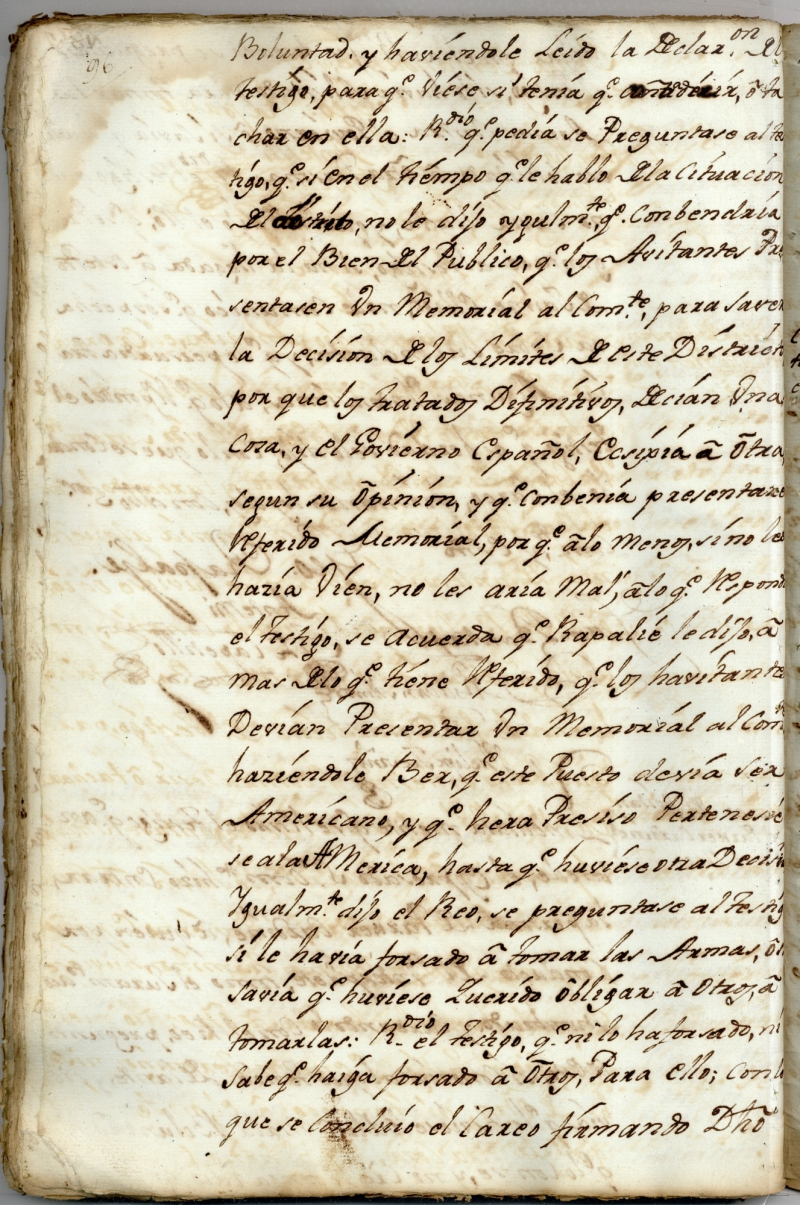 96
Boluntad. y haviéndole Leido la Declar.on Del
testigo, para q.e viese si tenía q.e añadir, ô ta
char en ella: R.dio q.e pedía se Preguntase al te
tigo, q.e si en el tiémpo q.e le hablo De la Cituación
Del distrito, no le dijo ygulm.te q.e Conbendría
por el Bien Del Publico, q.e los Avitantes Pre
sentasen Vn Memoríal al Com.te, para saver
la Decisión De los Límites De este Distrícto
por que los tratados Difinitívos, Decían Vna
Cosa, y el Goviérno Español, Exsijía â Ôtra,
segun su Ôpinión, y q.e conbenía presentar el
Referido Memoríal, por q.e âlo menos, si no les
hazía Vién, no les aría Mal, âlo q.e Respondió
el testígo, se acuerda q.e Rapalié le dijo, â
mas De lo q.e tiéne Referído, q.e los havítante
Devían Presentar Vn Memoriál al Com.te
haziéndole Ber, q.e este Puesto devía ser
Ameríçano, y q.e hera Presíso Pertenesie
se ala AMerica, hasta q.e huviése otra Decisió
Ygualm.te dijo el Reo, se preguntase al testig
si le havía forsado â tomar las Armas, ô si
savía q.e huviése Querído Ôbligar â Otros, â
tomarlas: R.dio el testígo, q.e ni lo ha forsado, ni
Sabe q.e haiga forsado â Ôtros, Para ello; con lo
que se Concluío el Careo firmando Dhô